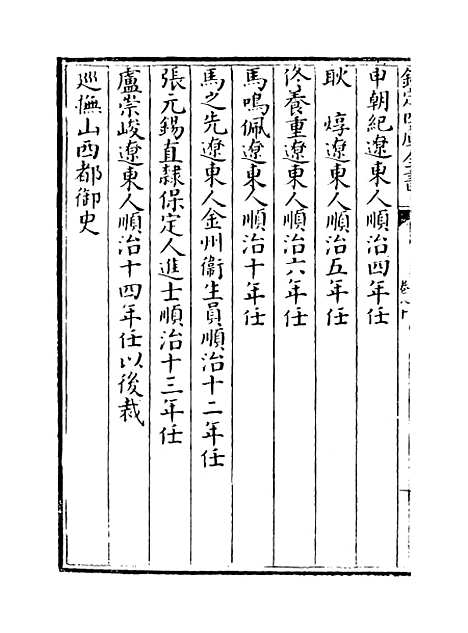 欽定四庫全書
卷八十
申朝紀遼東人順治四年任
耿 焞遼東人順治五年任
佟養重遼東人順治六年任
馬鳴佩遼東人順治十年任
馬之先遼東人金州衞生員順治十二年任
張元錫直隸保定人進士順治十三年任
盧崇峻遼東人順治十四年任以後裁
廵撫山西都御史